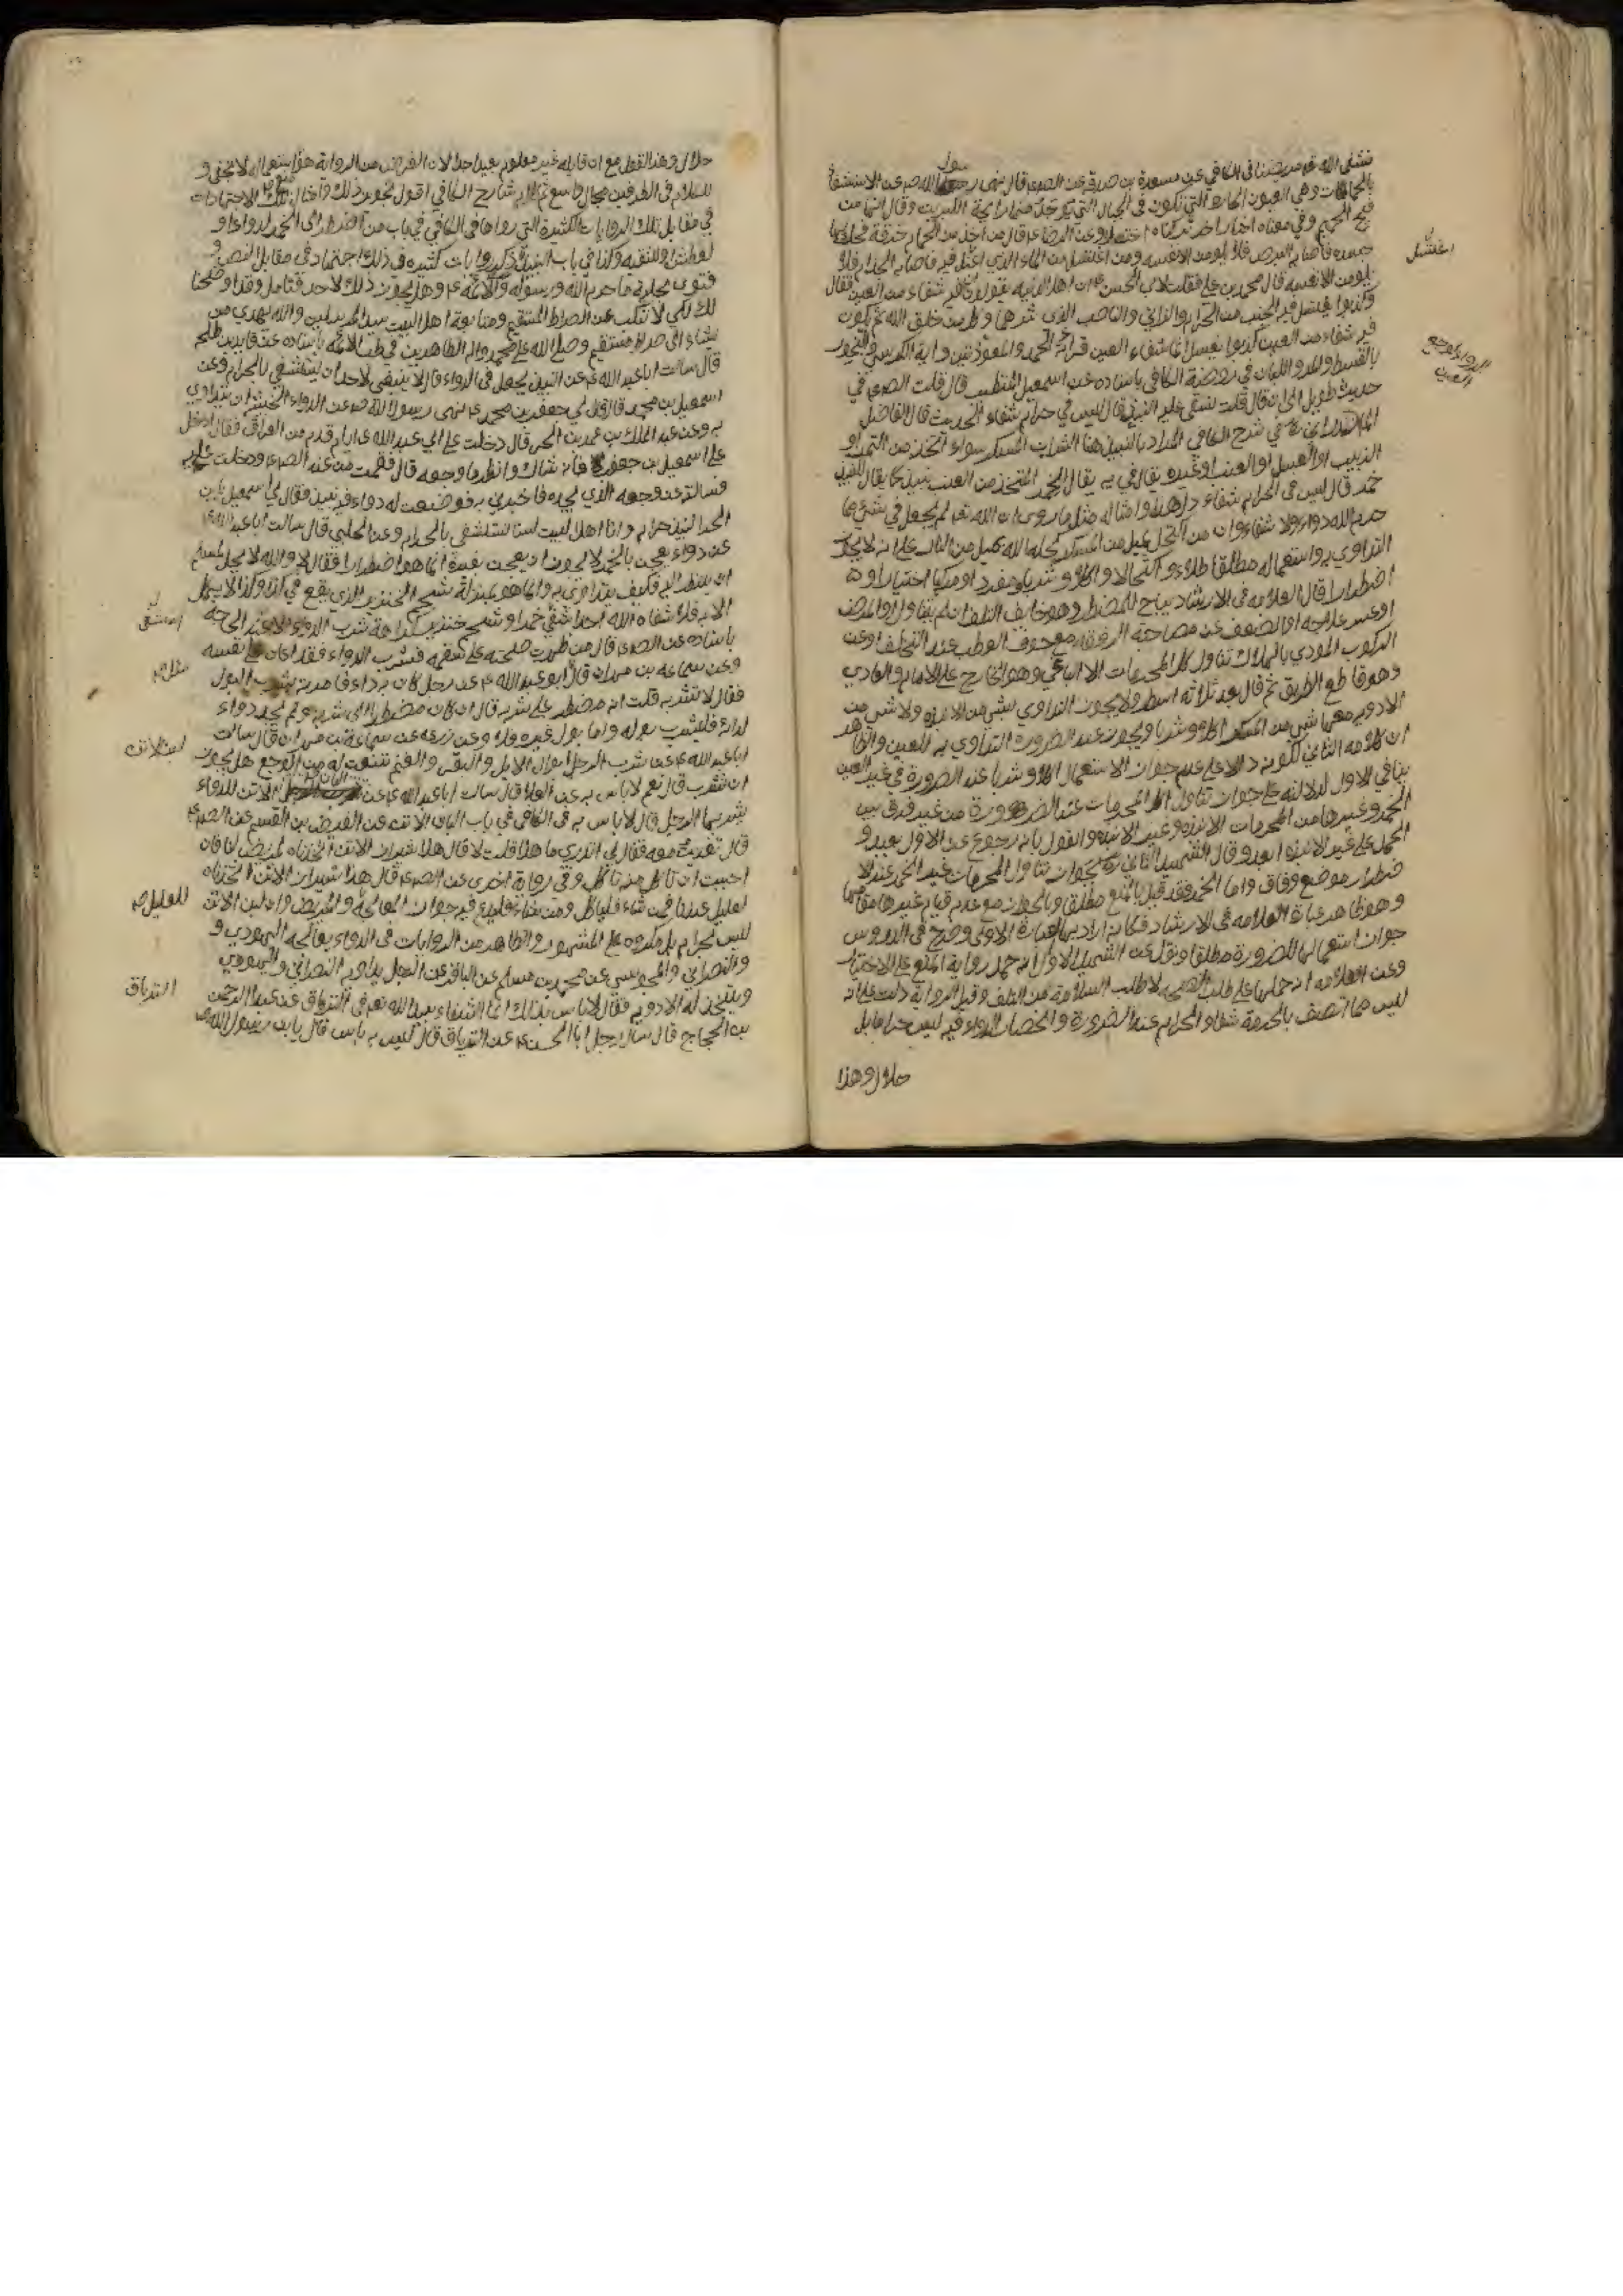 فشفى الله مريضنا في الكافي عن مسعدة بن صدقة عن الصادق قال نهى رسول الله ص عن الاستشفاء
بالحمات وهي العيون الحارة التي تكون في الجبال التي توجد منها رايحة الكبريت وقال انها من
فيح جهنم وفي معناه اخبار اخر تركناه اختصارا وعن الرضا ع قال من اخذ من الحمام خزفة فحك بها
جسده فاصابه البرص فلا يلومن الا نفسه ومن اغتسل من الماء الذي اغتسل فيه فاصابه الجذام فلا
يلومن الا نفسه قال محمد بن علي فقلت لابي الحسن ع ان اهل المدينة يقولون ان فيه شفاء من العين فقال
كذبوا يغتسل فيه الجنب من الحرام والزاني والناصب الذي شرهما وكل من خلق الله ثم يكون
فيه شفاء من العين كذبوا انما شفاء العين قراءة الحمد والمعوذتين واية الكرسي والبخور
بالقسط والمر واللبان في روضة الكافي باسناده عن اسمعيل المتطبب قال قلت الصادق في
حديث طويل الى ان قال قلت نسقي عليه النبيذ قال ليس في حرام شفاء الحديث قال الفاضل
المازندراني في شرح الكافي المراد بالنبيذ هنا الشراب المسكر سواء اتخذ من التمر او
الزبيب او العسل او العنب او غيره يقال في يه يقال للخمر المتخذ من العنب نبيذ كما يقال للنبيذ
خمر قال ليس في الحرام شفاء دل هذا وامثاله مثل ما روى ان الله تعالى لم يجعل في شيء مما
حرم الله دواء ولا شفاء وان من اكتحل بميل من المسكر كحله الله بميل من النار على انه لا يجوز
التداوي به واستعماله مطلقا طلاء واكتحالا واكلا وشربا ومفردا ومركبا اختيارا و
اضطرارا قال العلامة في الارشاد يباح للمضطر وهو خايف التلف ان لم يتناول او المرض
او عسر علاجه او الضعف عن مصاحبة الرفقة مع خوف العطب عند التخلف او عن
الركوب المودي بالهلاك تناول كل المحرمات الا الباغي وهو الخارج على الامام والعادي
وهو قاطع الطريق ثم قال بعد ثلاثة اسطر ولا يجوز التداوي بشي من الانبذة ولا شي من
الادوية معها شي من المسكر اكلا وشربا ويجوز عند الضرورة التداوي به للعين والظاهر
ان كلامه الثاني لكونه دالا على عدم جواز الاستعمال اكلا وشربا عند الضرورة في غير العين
ينافي الاول لدلالته على جواز تناول المحرمات عند الضرورة من غير فرق بين
الخمر وغيرها من المحرمات الانبذة وغير الانبذة والقول بانه رجوع عن الاول بعيد و
الحمل على غير الانبذة ابعد وقال الشهيد الثاني ره يجوز تناول المحرمات غير الخمر عند الا
ضطرار موضع وفاق واما الخمر فقد قيل بالمنع مطلقا وبالجواز مع عدم قيام غيرها مقامها
وهو ظاهر عبارة العلامة في الارشاد فكانه اراد بها العبارة الاولى وصرح في الدروس
جواز استعمالها للضرورة مطلقا ونقل عن الشهيد الاول انه حمل رواية المنع على الاختيار
وعن العلامة انه حملها على طلب الصحة لا طلب السلامة من التلف وقيل الرواية دلت على انه
ليس مما اتصف بالحرمة شفاء والحرام عند الضرورة وانحصار الدواء فيه ليس حراما بل
حلال وهذا
اغتسل
الدواء لوجع
العين
حلال وهذا القول مع ان قايله غير معلوم بعيد جدا لان الغرض من الرواية هو استعماله لا يخفى و
للكلام في الطرفين مجال واسع تم كلام شارح الكافي اقول تجويز ذلك وامثال تلك الاجتهادات
في مقابل تلك الروايات الكثيرة التي رواها في الكافي في باب من اضطر الى الخمر لدواء او
لعطش او للتقية وكذا في باب النبيذ ذكر روايات كثيرة في ذلك اجتهاد في مقابل النص و
فتوى بحلية ما حرم الله ورسوله والائمة ع وهل يجوز ذلك لاحد فتامل وقد اوضحنا
لك لكي لا تنكب عن الصراط المستقيم ومتابعة اهل البيت سيد المرسلين والله يهدي من
يشاء الى صراط مستقيم وصلى الله على محمد واله الطاهرين في طب الائمة باسناده عن قايد بن طلحة
قال سالت ابا عبد الله ع عن النبيذ يجعل في الدواء قال لا ينبغي لاحد ان يستشفي بالحرام وعن
اسمعيل بن محمد قال قال لي جعفر بن محمد ع نهى رسول الله ص عن الدواء الخبيث ان يتداوى
به وعن عبد الملك بن عمر بن الحر قال دخلت على ابي عبد الله ع ايام قدم من العراق فقال ادخل
على اسمعيل بن جعفر فانه شاك وانظر ما وجعه قال فقمت من عند الصادق ودخلت عليه
فسالته عن وجعه الذي يجده فاخبرني به فوصفت له دواء فيه نبيذ فقال لي اسمعيل يا بن
الحر النبيذ حرام وانا اهل البيت لسنا نستشفي بالحرام وعن الحلبي قال سالت ابا عبد الله ع
عن دواء يعجن بالخمر لا يجوز ان يعجن بغيره انما هو اضطرار فقال لا والله لا يحل للمسلم
ان ينظر اليه فكيف يتداوى به وانما هو بمنزلة شحم الخنزير الذي يقع في كذا وكذا لا يكمل
الا به فلا شفاه الله احدا شفي خمر او شحم خنزير كراهة شرب الدواء الا عند الحاجة
باسناده عن الصادق قال من ظهرت صحته على سقمه فشرب الدواء فقد اعان على نفسه
وعن سماعة بن مهران قال ابو عبد الله ع عن رجل كان به داء فامر به بشرب البول
فقال لا تشربه قلت انه مضطر على شربه قال ان كان مضطرا الى شربه ولم يجد دواء
لدائه فليشرب بوله واما بول غيره فلا وعن زرعة عن سماعة بن مهران قال سالت
ابا عبد الله ع عن شرب الرجل ابوال الابل والبقر والغنم تنعت له من الوجع هل يجوز
ان شرب قال نعم لا باس به عن العلا قال سالت ابا عبد الله ع عن البان الاتن للدواء
يشربها الرجل قال لا باس به في الكافي في باب البان الاتن عن العيص بن القسم عن الصادق
قال تغديت معه فقال لي اتدري ما هذا قلت لا قال هذا شيراز الاتن اتخذناه لمريض لنا فان
احببت ان تاكل منه تاكل وفي رواية اخرى عن الصادق قال هذا شيراز الاتن اتخذناه
لعليل عندنا فمن شاء فلياكل ومن شاء فليدع فيه جواز المعالجة والمريض وان لبن الاتن
ليس بحرام بل مكروه على المشهور والظاهر من الروايات في الدواء يعالجه اليهودي و
والنصراني والمجوسي عن محمد بن مسلم عن الباقر عن الرجل يداويه النصراني واليهودي
ويتخذ له الادوية فقال لا باس بذلك انما الشفاء بيد الله تعالى في الترياق عن عبد الرحمن
بن الحجاج قال سال رجل ابا الحسن ع عن الترياق قال ليس به باس قال يا بن رسول الله ص
استشفى
لبن الاتن
للعليل
الترياق